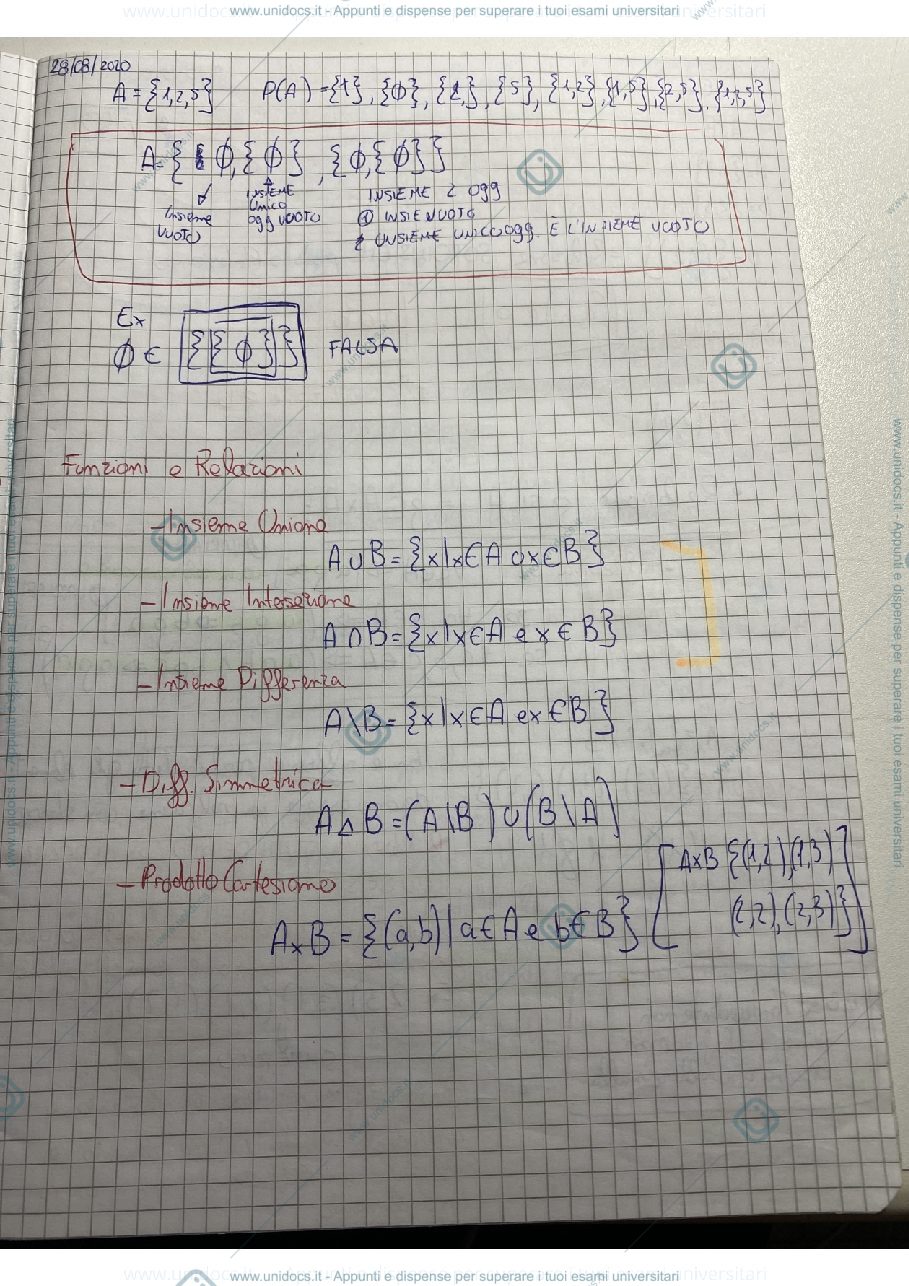 www.unidocs.it - Appunti e dispense per superare i tuoi esami universitari
28/08/2020
A = {1,2,5} P(A) = {1}, {ϕ}, {2}, {5}, {1,2}, {1,5}, {2,5}, {1,2,5}
A = { ϕ, {ϕ} , {ϕ,{ϕ}}
Insieme VUOTO
INSIEME Unico ogg VUOTO
INSIEME 2 ogg
① INSIE VUOTO
2 UNSIEME UNICO ogg È L'INSIEME VUOTO
Ex
ϕ ∈ {{ϕ}} FALSA
Funzioni e Relazioni
- Insieme Unione
A ∪ B = {x | x ∈ A o x ∈ B}
- Insieme Intersezione
A ∩ B = {x | x ∈ A e x ∈ B}
- Insieme Differenza
A \ B = {x | x ∈ A e x ∈ B}
- Diff. Simmetrica
A △ B = (A \ B) ∪ (B \ A)
- Prodotto Cartesiano
A x B = {(a,b) | a ∈ A e b ∈ B}
[AxB {(1,2),(1,3)
(2,2),(2,3)}]
www.unidocs.it - Appunti e dispense per superare i tuoi esami universitari